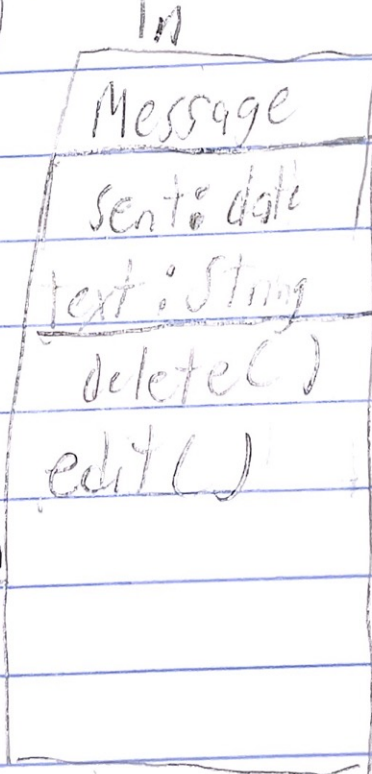 In
Message
sent: date
text: String
delete()
edit()